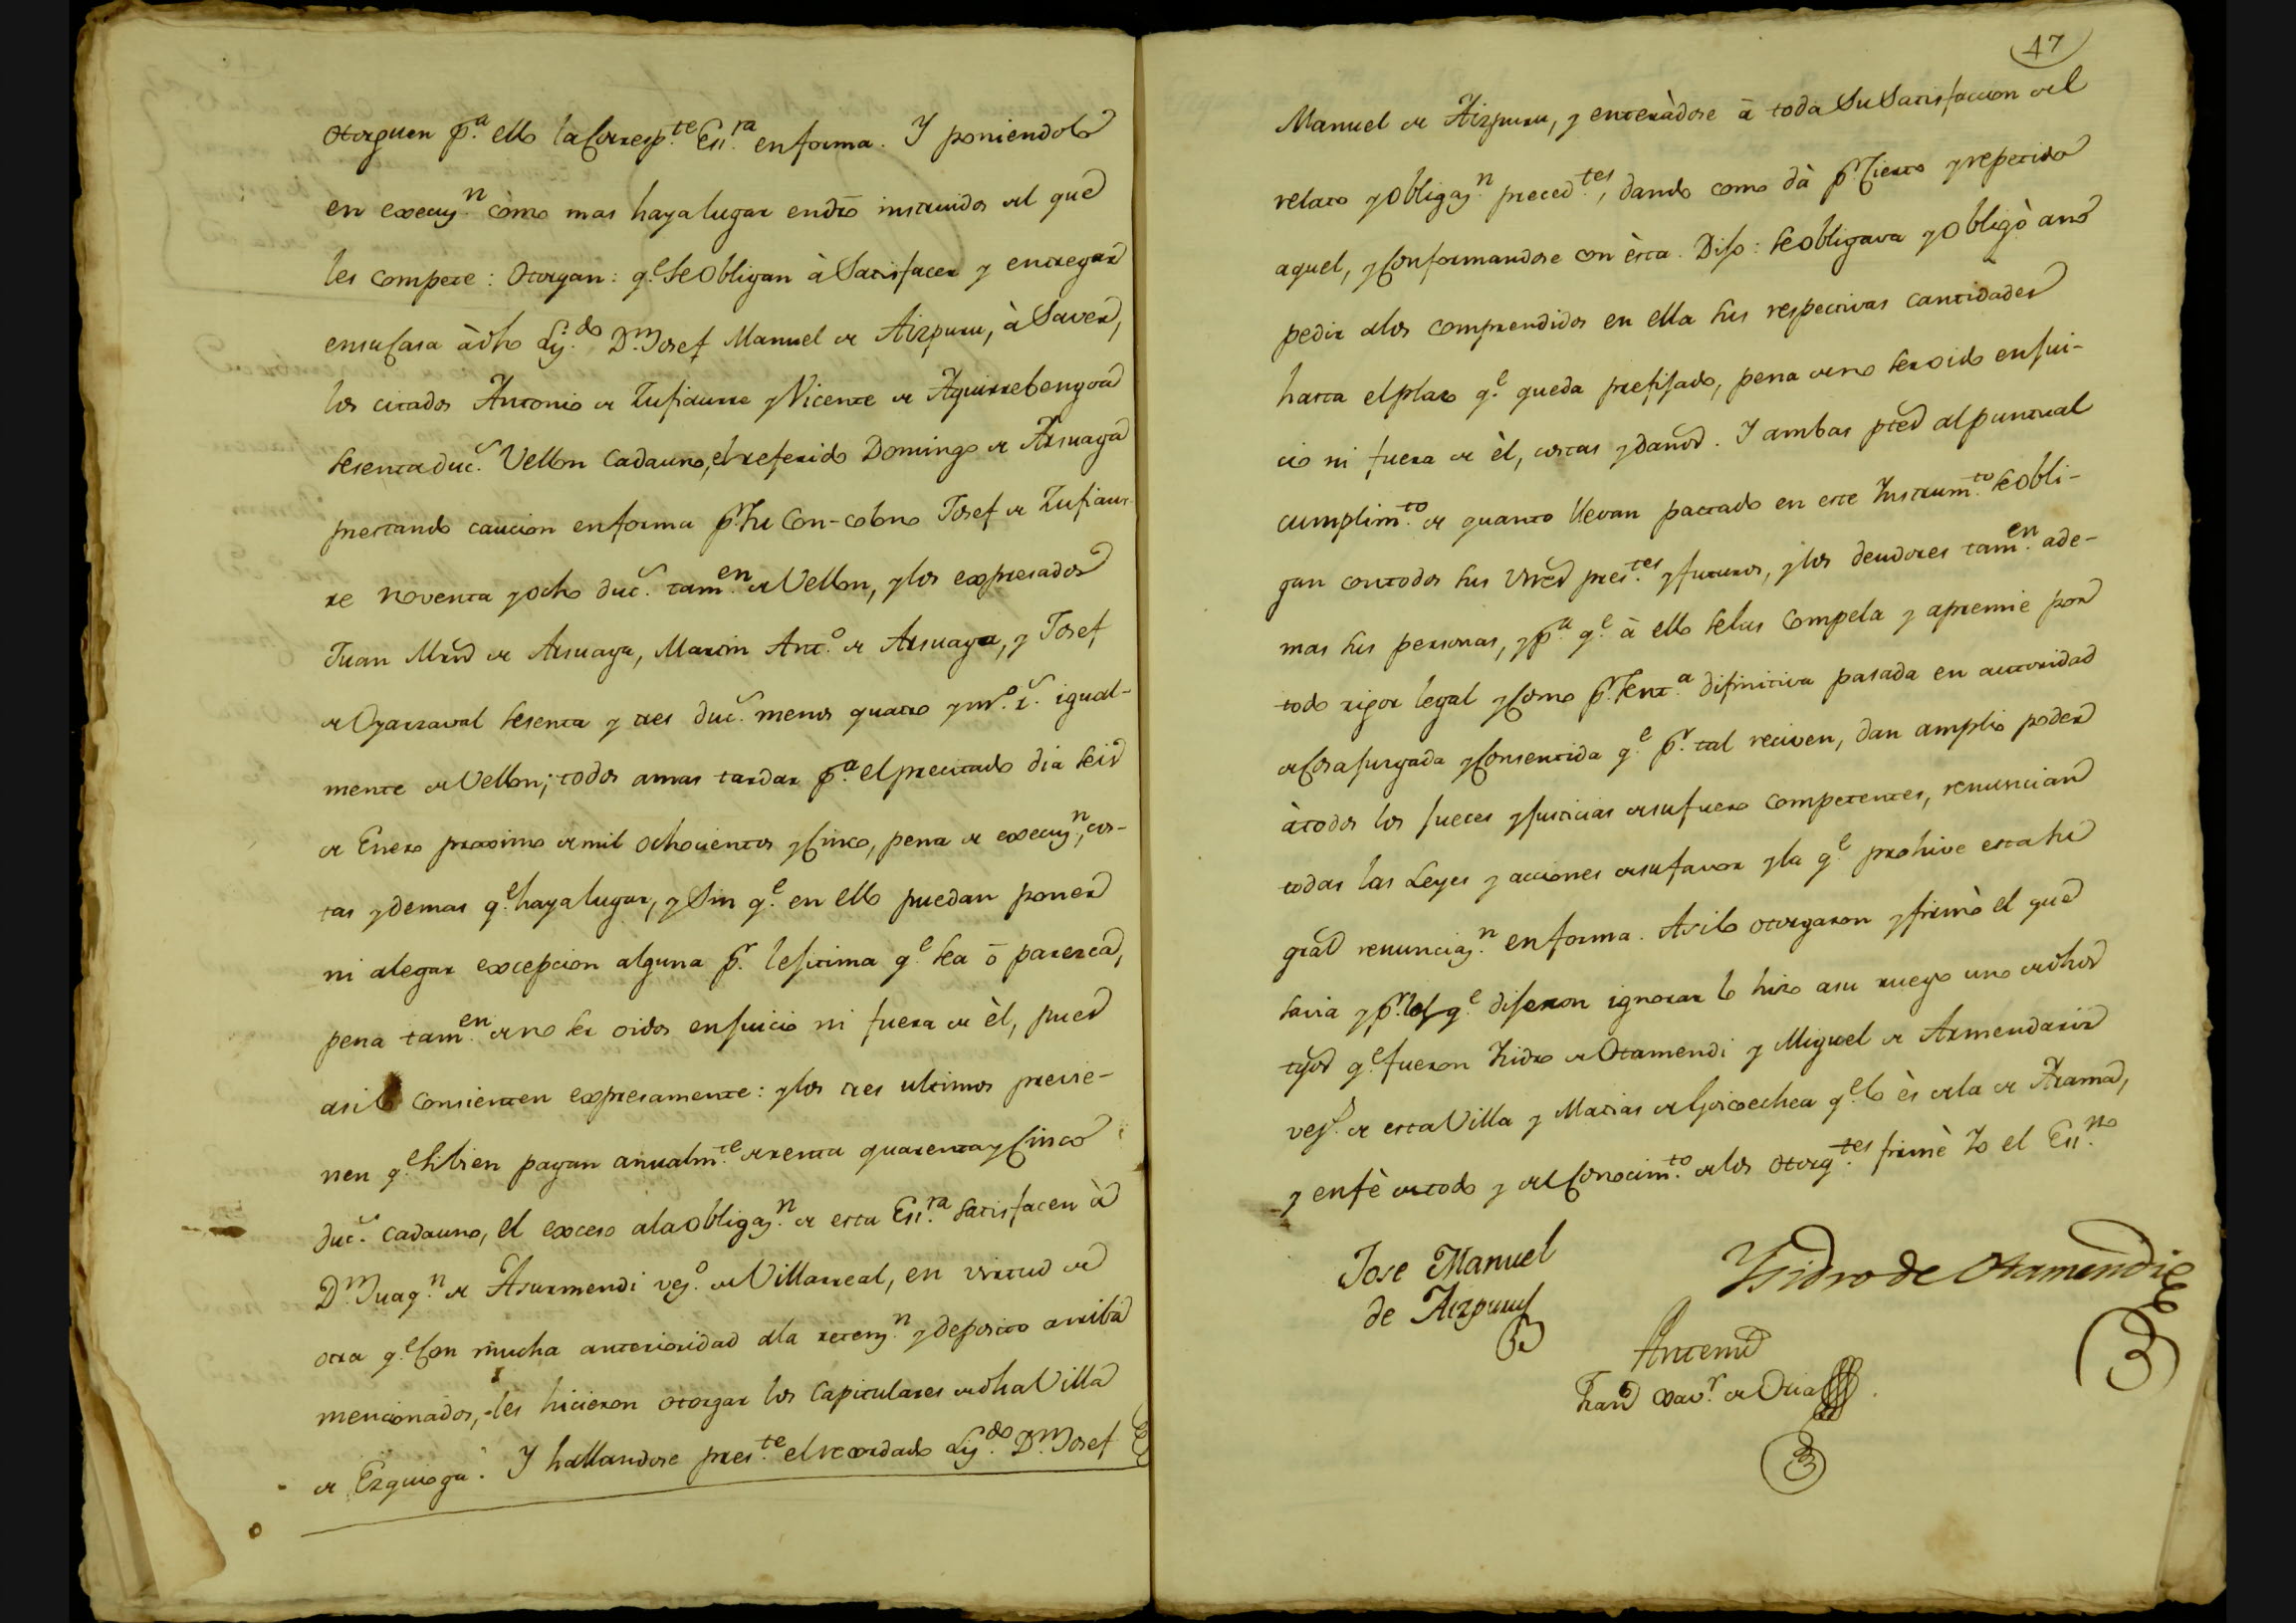 otorguen p.ª ello la Corresp.te Es.ra en forma. Y poniendolo
en execuz.n cómo mas haya lugar en dro instruidos del que
les compete: Otorgan: q.e se obligan à Satisfacer y entregar
en su Casa à dho Liz.do D.n Josef Manuel de Aizpuru, à Saver,
los citados Antonio de Zufiaurre y Vicente de Aguirrebengoa
sesenta duc.s Vellon cada uno, el referido Domingo de Arsuaga
prestando caucion en forma p.r su Con-colono Josef de Zufiaur-
re noventa y ocho duc.s tam.en de Vellon, y los expresados
Juan Mrn de Arsuaga, Martin Ant.o de Arsuaga, y Josef
de Oyarzaval sesenta y tres duc.s menos quatro y m.o r.s igual-
mente de Vellon; todos amas tardar p.a el precitado dia seis
de Enero proximo de mil ochocientos y Cinco, pena de execuz.n, cos-
tas y demas q.e haya lugar, y Sin q.e en ello puedan poner
ni alegar excepcion alguna p.r lejitima q.e sea ò parezca,
pena tam.en de no ser oidos en juicio ni fuera de èl, pues
asi lo Consienten expresamente: y los tres ultimos previe-
nen q.e si bien pagan anualm.te de renta quarenta y Cinco
duc.s cada uno, el exceso a la obligaz.n de esta Es.ra satisfacen à
D.n Juaq.n de Asurmendi vez.o de Villarreal, en virtud de
otra q.e Con mucha anterioridad a la retenz.n y deposito arriba
mencionados, les hicieron otorgar los Capitulares de dha Villa
de Ezquioga. Y hallandose pres.te el recordado Liz.do D.n Josef
47
Manuel de Aizpuru, y enteràdose à toda Su Satisfaccion del
relato y Obligaz.n preced.tes, dando como dà p.r Cierto y repetido
aquel, y Conformandose con èsta. Dijo: se obligava y obligò a no
pedir a los comprendidos en ella sus respectivas cantidades
hasta el plazo q.e queda prefijado, pena de no ser oido en jui-
cio ni fuera de èl, costas y daños. Y ambas ptes al puntual
cumplim.to de quanto llevan pactado en este Instrum.to se obli-
gan con todos sus vnes pres.tes y futuros, y los deudores tam.en ade-
mas sus personas, y p.a q.e à ello se les Compela y apremie por
todo rigor legal y Como p.r Sent.a difinitiva pasada en autoridad
de Cosa juzgada y Consentida q.e p.r tal reciven, dan amplio poder
à todos los jueces y justicias de su fuero competentes, renuncian
todas las Leyes y acciones de su favor y la q.e prohive esta su
gral renunciaz.n en forma. Asi lo otorgaron y firmò el que
savia y p.r los q.e dijeron ignorar lo hizo a su ruego uno de dhos
tgos q.e fueron Isidro de Otamendi y Miguel de Armendariz
vez.s de esta Villa y Matias de Goicoechea q.e lo ès de la de Arama,
y en fè de todo y del Conocim.to de los otorg.tes firmè Yo el Es.no
Jose Manuel
de Aizpuru
Ysidro de Otamendi
Antemi
Fran.co Xav.r de Oria